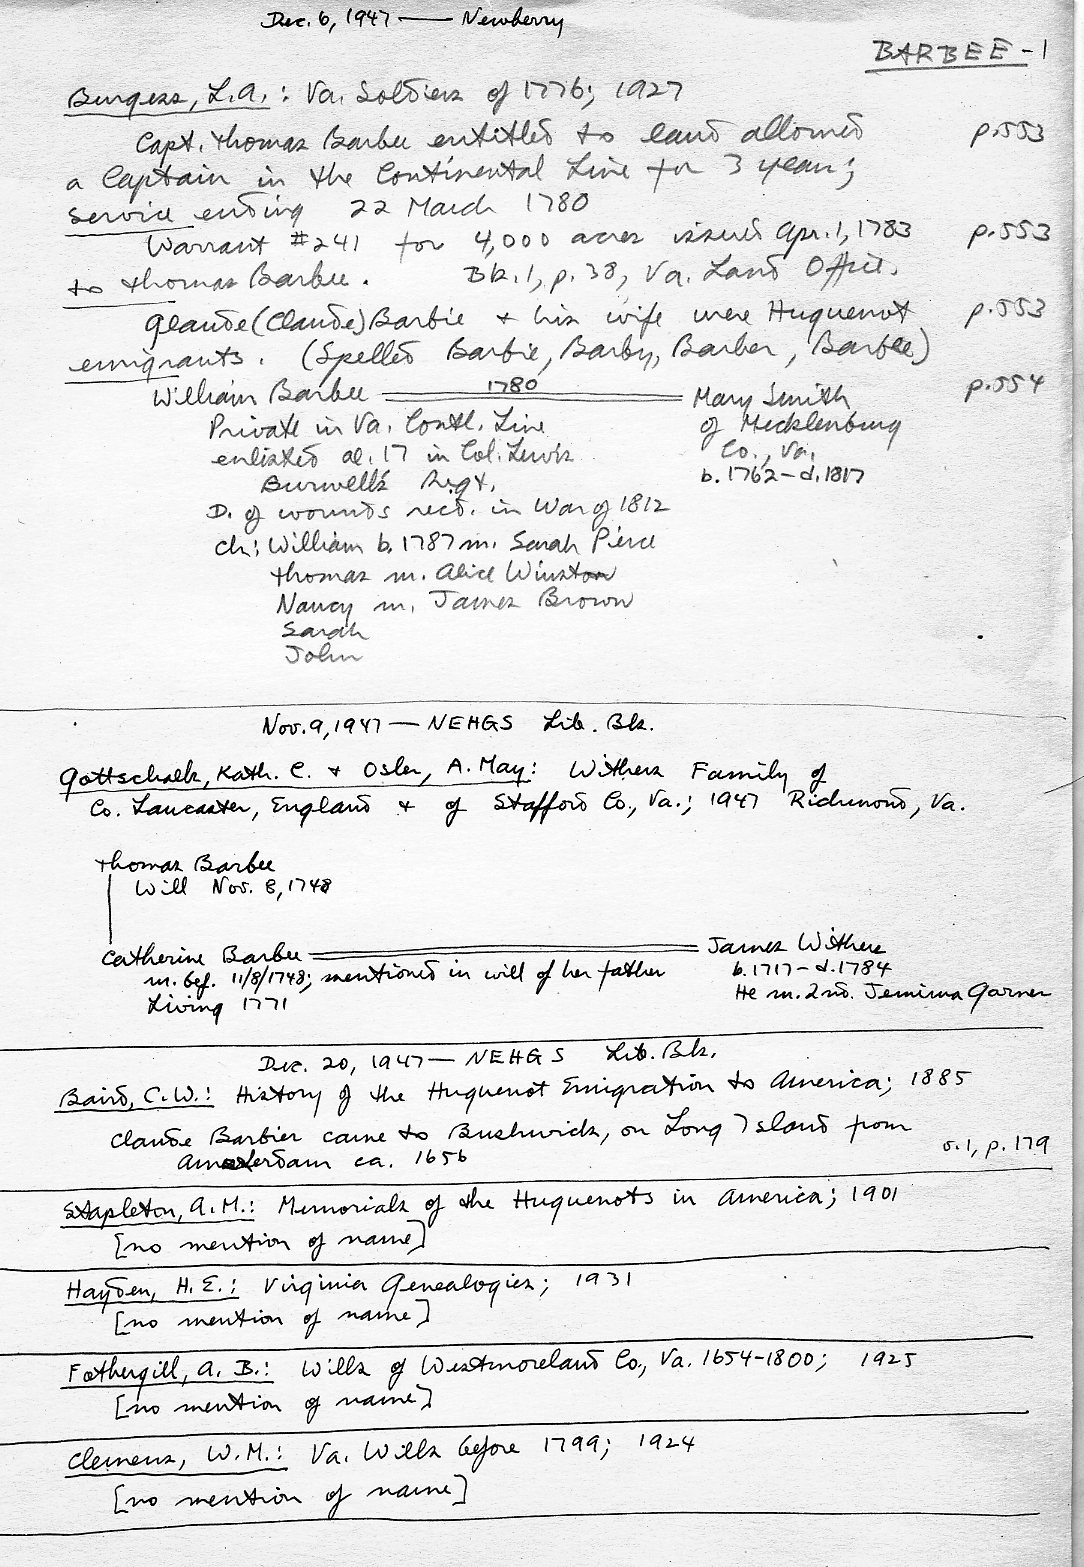 Dec. 6, 1947 — Newberry
BARBEE - 1
Burgess, L.A.: Va. Soldiers of 1776; 1927
Capt. Thomas Barbee entitled to land allowed p.553
a Captain in the Continental Line for 3 years;
service ending 22 March 1780
Warrant #241 for 4,000 acres issued Apr. 1, 1783 p.553
to Thomas Barbee. Bk.1, p.38, Va. Land Office.
Glaude (Claude) Barbie + his wife were Huguenot p.553
emigrants. (Spelled Barbie, Barby, Barber, Barbee)
William Barbee 1780 Mary Smith p.554
Private in Va. Contl. Line of Mecklenburg
enlisted ae. 17 in Col. Lewis Co., Va.
Burwell's Regt. b.1762-d.1817
D. of wounds recd. in War of 1812
ch: William b. 1787 m. Sarah Pierce
Thomas m. Alice Winston
Nancy m. James Brown
Sarah
John
Nov. 9, 1947 — NEHGS Lib. Bk.
Gottschalk, Kath. C. + Osler, A. May: Withers Family of
Co. Lancaster, England + of Stafford Co., Va.; 1947 Richmond, Va.
Thomas Barbee
Will Nov. 8, 1748
Catherine Barbee James Withers
m. bef. 11/8/1748; mentioned in will of her father b.1717-d.1784
Living 1771 He m. 2nd. Jemima Garner
Dec. 20, 1947 — NEHGS Lib. Bk.
Baird, C.W.: History of the Huguenot Emigration to America; 1885
Claude Barbier came to Bushwick, on Long Island from
Amsterdam ca. 1656 v.1, p.179
Stapleton, A.M.: Memorials of the Huguenots in America; 1901
[no mention of name]
Hayden, H.E.: Virginia Genealogies; 1931
[no mention of name]
Fothergill, A. B.: Wills of Westmoreland Co., Va. 1654-1800; 1925
[no mention of name]
Clemens, W.M.: Va. Wills before 1799; 1924
[no mention of name]